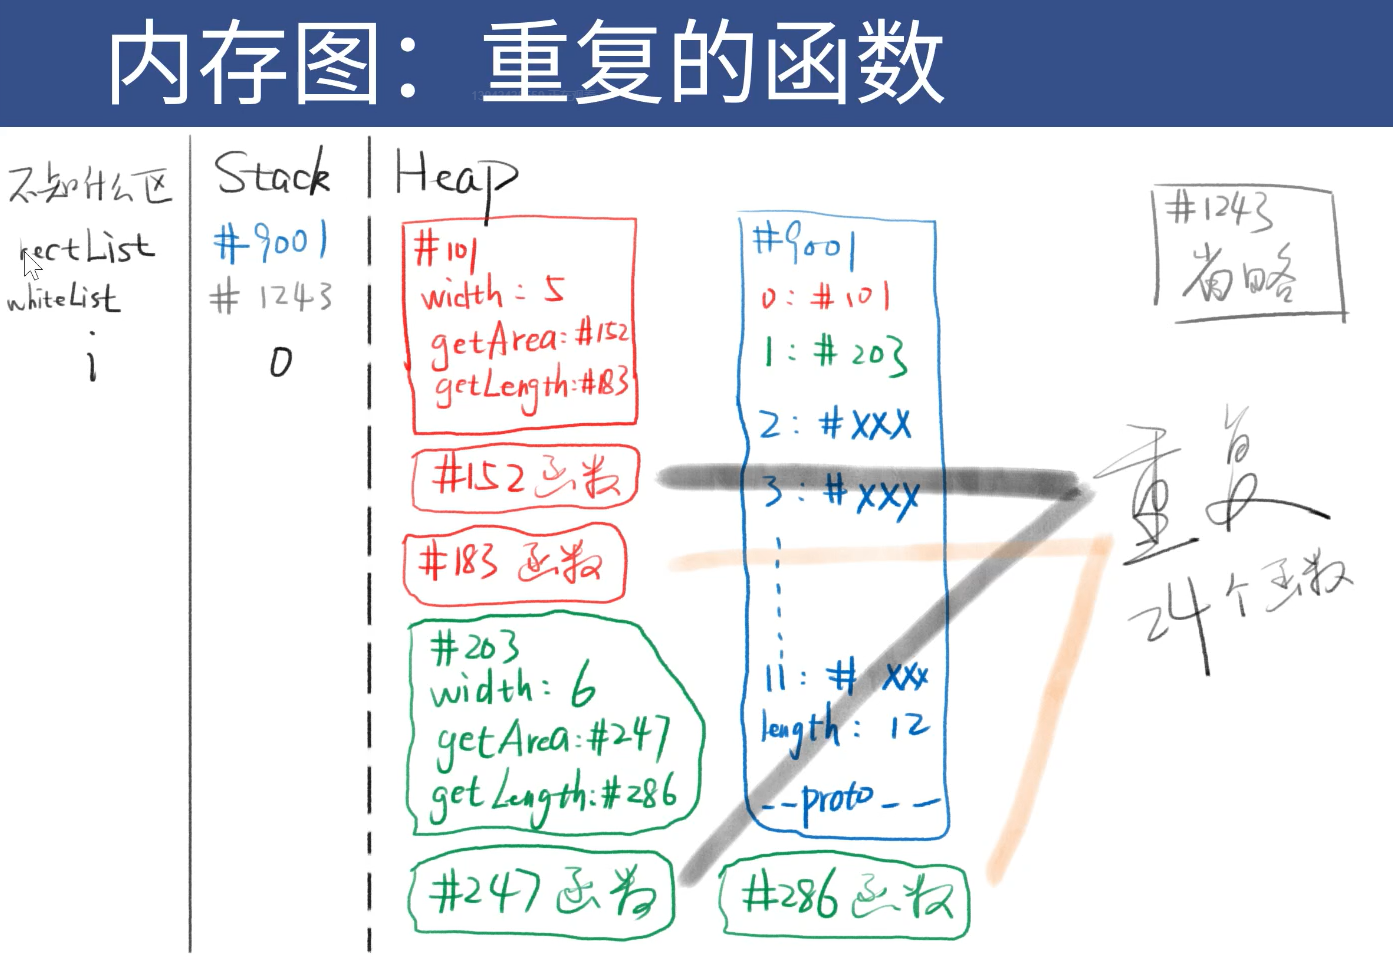 内存图：重复的函数
不知什么区
rectList
whiteList
i
Stack
#9001
#1243
0
Heap
#101
width: 5
getArea:#152
getLength:#183
#152 函数
#183 函数
#203
width: 6
getArea:#247
getLength:#286
#247 函数
#9001
0: #101
1: #203
2: #XXX
3: #XXX
11: # XXX
length: 12
--proto--
#286 函数
#1243
省略
重复
24个函数